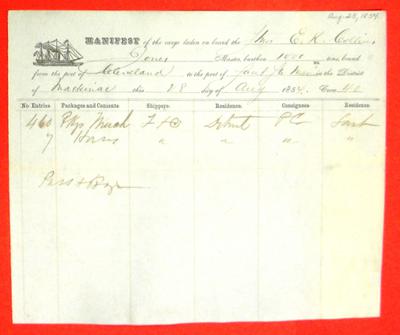 Aug. 28, 1854
MANIFEST of the cargo taken on board the Str E. K. Collins,
Jones Master, burthen 1000 tons, was bound
from the port of Cleveland to the port of Saut Ste Marie in the District
of Mackinac this 28 day of Aug 1854. Crew 40
No. Entries. Packages and Contents Shippers. Residence. Consignees Residence.
460 Pkgs Mdse Detroit Saut
7 Horses " " " "
Pass & Bag